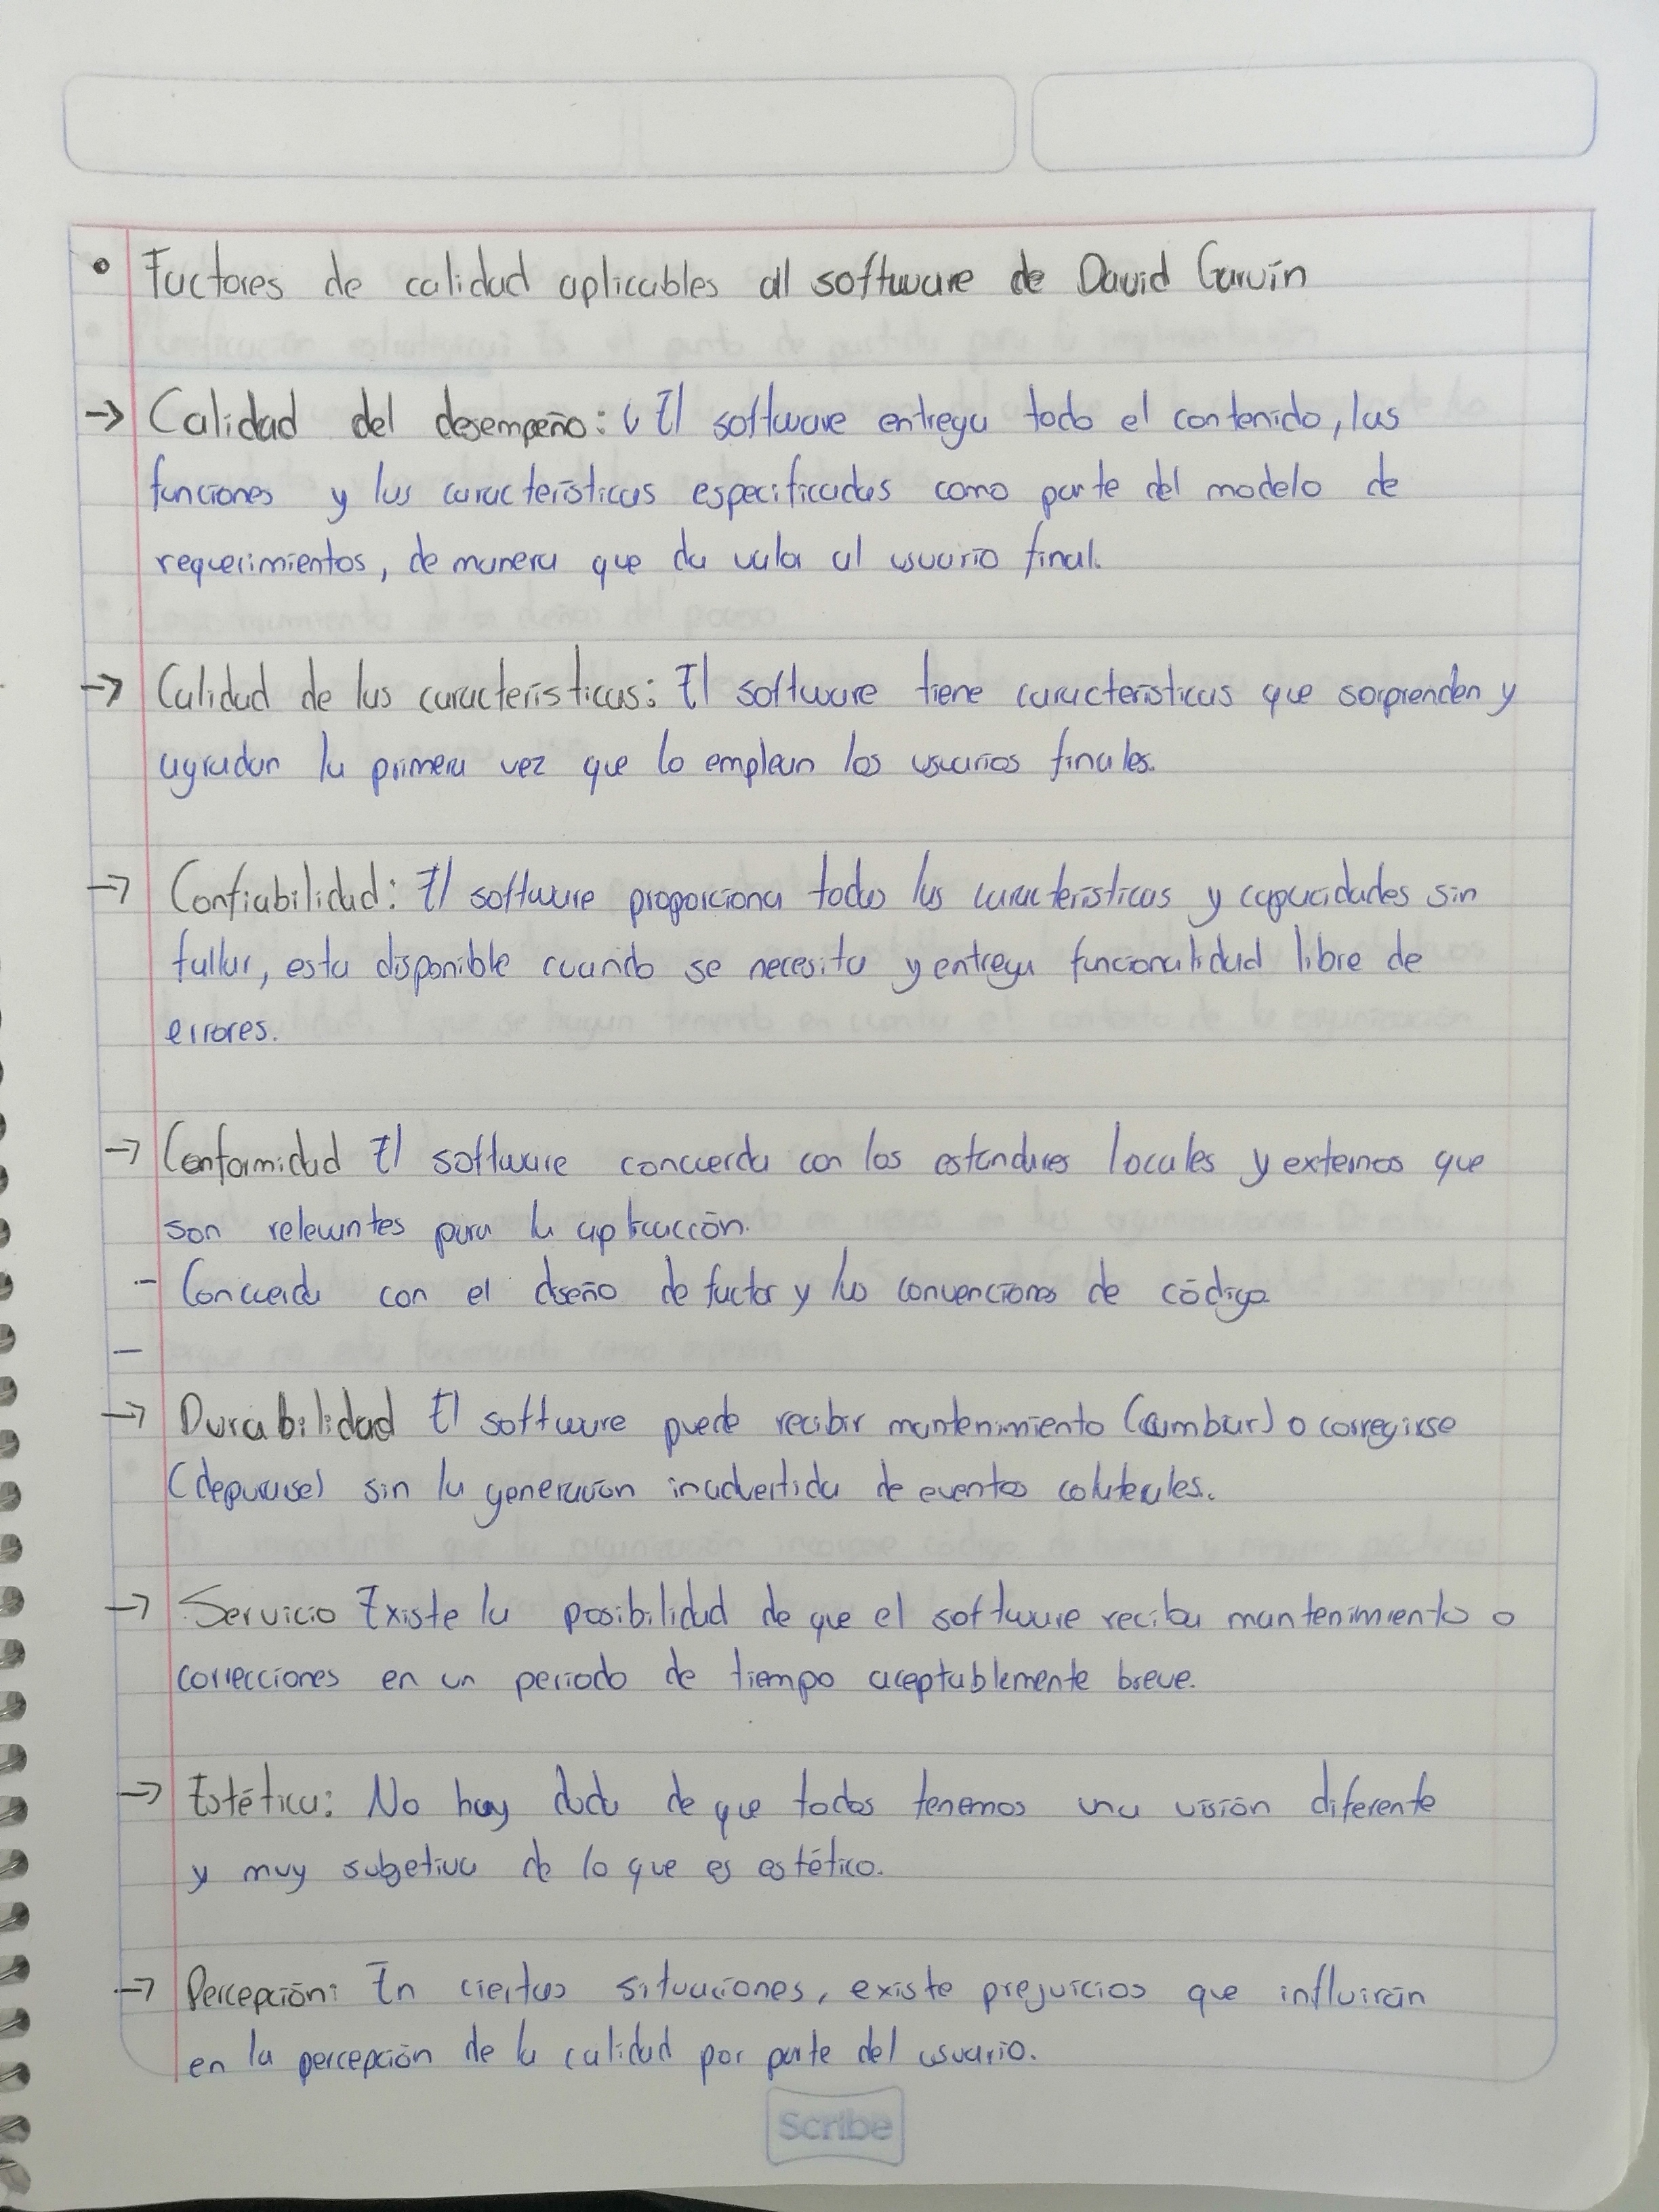 • Factores de calidad aplicables al software de David Garvin
→ Calidad del desempeño: ¿ El software entrega todo el contenido, las
funciones y las características especificadas como parte del modelo de
requerimientos, de manera que da valor al usuario final.
→ Calidad de las características: El software tiene características que sorprenden y
agradan la primera vez que lo emplean los usuarios finales.
→ Confiabilidad: El software proporciona todas las características y capacidades sin
fallar, esta disponible cuando se necesita y entrega funcionalidad libre de
errores.
→ Conformidad El software concuerda con los estandares locales y externos que
son relevantes para la aplicación.
- Concuerda con el diseño de factor y las convenciones de código
-
→ Durabilidad El software puede recibir mantenimiento (cambiar) o corregirse
(depurarse) sin la generación inadvertida de eventos colaterales.
→ Servicio Existe la posibilidad de que el software reciba mantenimiento o
correcciones en un periodo de tiempo aceptablemente breve.
→ Estética: No hay duda de que todos tenemos una visión diferente
y muy subjetiva de lo que es estético.
→ Percepción: En ciertas situaciones, existe prejuicios que influirán
en la percepción de la calidad por parte del usuario.
Scribe